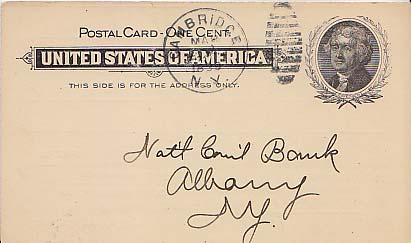 POSTAL CARD - ONE CENT.
UNITED STATES OF AMERICA
THIS SIDE IS FOR THE ADDRESS ONLY.
CAMBRIDGE
MAR
N.Y.
Nat'l Com'l Bank
Albany
N.Y.